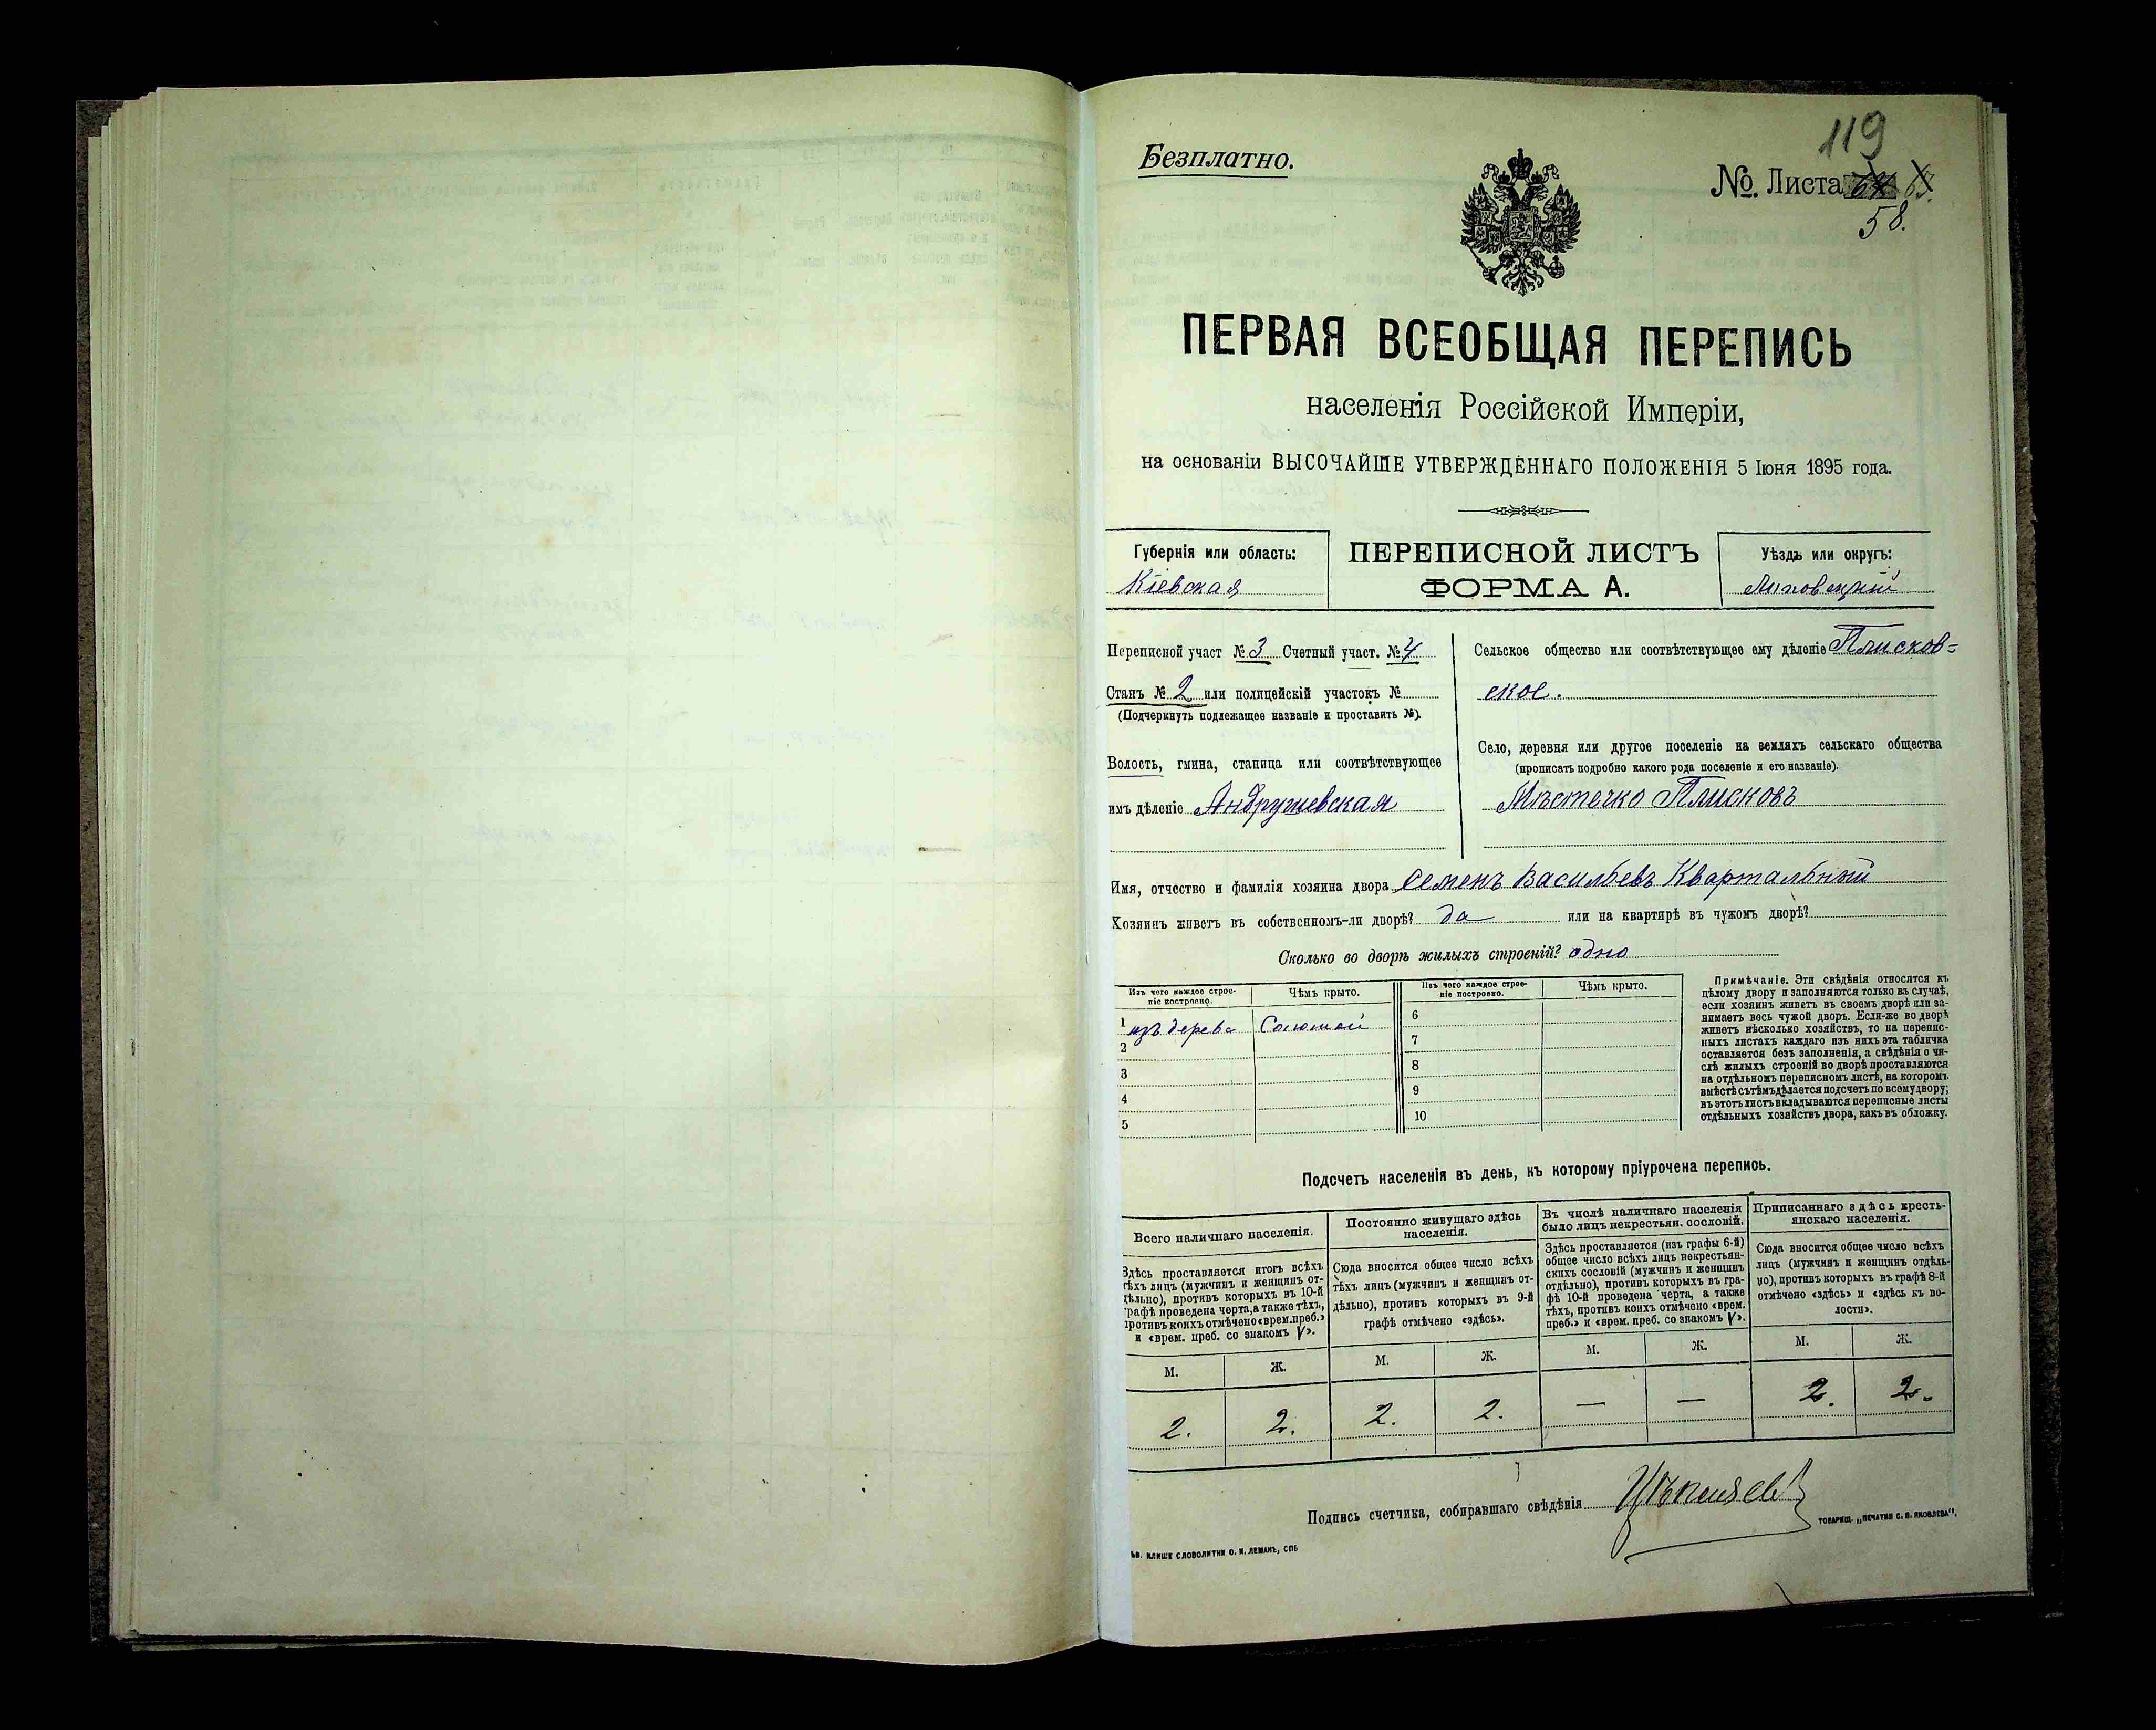 119
Безплатно.
№. Листа 64 63.
58.
ПЕРВАЯ ВСЕОБЩАЯ ПЕРЕПИСЬ
населенія Россійской Имперіи,
на основаніи ВЫСОЧАЙШЕ УТВЕРЖДЕННАГО ПОЛОЖЕНІЯ 5 Іюня 1895 года.
Губернія или область:
Кіевская
ПЕРЕПИСНОЙ ЛИСТЪ
ФОРМА А.
Уѣздъ или округъ:
Липовецкій
Переписной участ № 3 Счетный участ. № 4
Станъ № 2 или полицейскій участокъ №
(Подчеркнуть подлежащее названіе и проставить №).
Волость, гмина, станица или соотвѣтствующее
имъ дѣленіе Андрушевская
Сельское общество или соотвѣтствующее ему дѣленіе Плисков=
ское.
Село, деревня или другое поселеніе на земляхъ сельскаго общества
(прописать подробно какого рода поселеніе и его названіе).
Мѣстечко Плисковъ
Имя, отчество и фамилія хозяина двора Семенъ Васильевъ Квартальный
Хозяинъ живетъ въ собственномъ-ли дворѣ? да или на квартирѣ въ чужомъ дворѣ?
Сколько во дворѣ жилыхъ строеній? одно
Изъ чего каждое строе-
ніе построено.
Чѣмъ крыто.
Изъ чего каждое строе-
ніе построено.
Чѣмъ крыто.
1 изъ дерева Соломой
2
3
4
5
6
7
8
9
10
Примѣчаніе. Эти свѣдѣнія относятся къ
цѣлому двору и заполняются только въ случаѣ,
если хозяинъ живетъ въ своемъ дворѣ или за-
нимаетъ весь чужой дворъ. Если-же во дворѣ
живетъ нѣсколько хозяйствъ, то на перепис-
ныхъ листахъ каждаго изъ нихъ эта табличка
оставляется безъ заполненія, а свѣдѣнія о чи-
слѣ жилыхъ строеній во дворѣ проставляются
на отдѣльномъ переписномъ листѣ, на которомъ
вмѣстѣ съ тѣмъ дѣлается подсчетъ по всему двору;
въ этотъ листъ вкладываются переписные листы
отдѣльныхъ хозяйствъ двора, какъ въ обложку.
Подсчетъ населенія въ день, къ которому пріурочена перепись.
Всего наличнаго населенія.
Здѣсь проставляется итогъ всѣхъ
тѣхъ лицъ (мужчинъ и женщинъ от-
дѣльно), противъ которыхъ въ 10-й
графѣ проведена черта, а также тѣхъ,
противъ коихъ отмѣчено «врем. преб.»
и «врем. преб. со знакомъ V».
Постоянно живущаго здѣсь
населенія.
Сюда вносится общее число всѣхъ
тѣхъ лицъ (мужчинъ и женщинъ от-
дѣльно), противъ которыхъ въ 9-й
графѣ отмѣчено «здѣсь».
Въ числѣ наличнаго населенія
было лицъ некрестьян. сословій.
Здѣсь проставляется (изъ графы 6-й)
общее число всѣхъ лицъ некрестьян-
скихъ сословій (мужчинъ и женщинъ
отдѣльно), противъ которыхъ въ гра-
фѣ 10-й проведена черта, а также
тѣхъ, противъ коихъ отмѣчено «врем.
преб.» и «врем. преб. со знакомъ V».
Приписаннаго здѣсь кресть-
янскаго населенія.
Сюда вносится общее число всѣхъ
лицъ (мужчинъ и женщинъ отдѣль-
но), противъ которыхъ въ графѣ 8-й
отмѣчено «здѣсь» и «здѣсь къ во-
лости».
М. Ж. М. Ж. М. Ж. М. Ж.
2. 2. 2. 2. — — 2. 2.
Подпись счетчика, собиравшаго свѣдѣнія
ТОВАРИЩ. „ПЕЧАТНЯ С. П. ЯКОВЛЕВА".
КЛИШЕ СЛОВОЛИТНИ О. И. ЛЕМАНЪ, СПБ